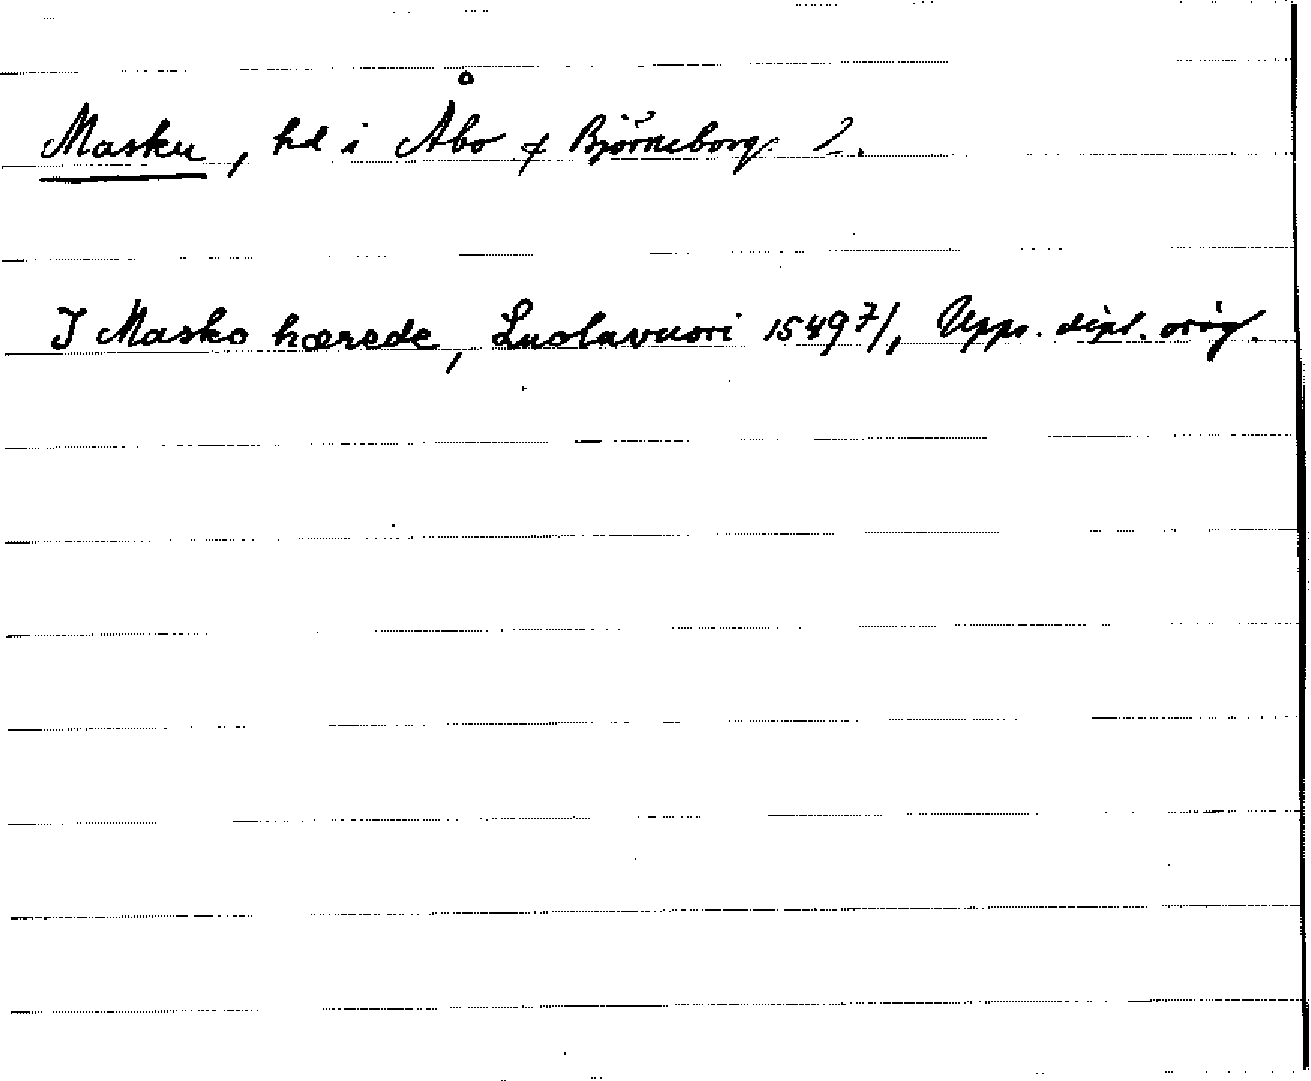 Masku, hd i Åbo & Björneborg l.
I Masko hærede, Luolavuori 1549 7/, Upps. dipl. orig.